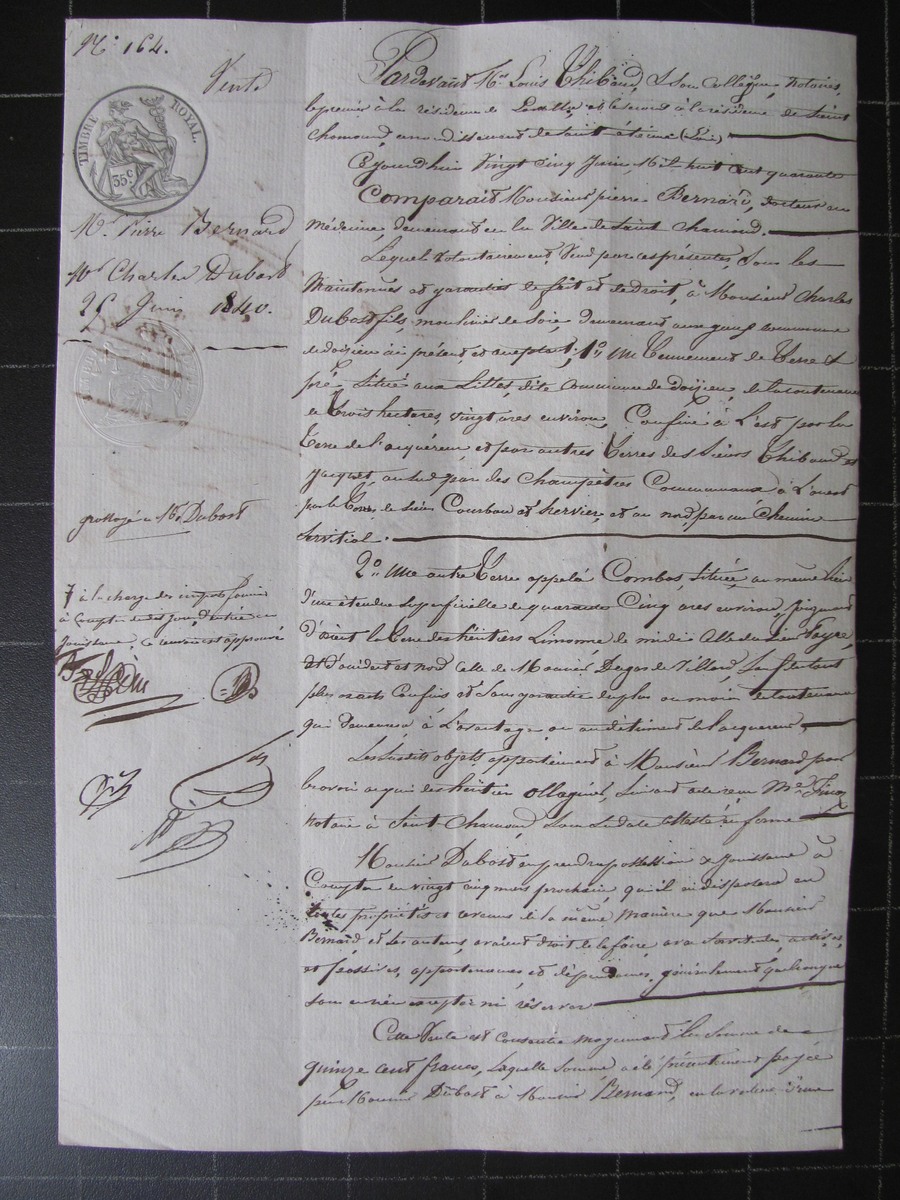 N° 164.
Vente
TIMBRE ROYAL.
35 c
Mr Pierre Bernard
Mr Charles Dubost
25 Juin 1840.
grossoyé à Mr Dubost
à la charge des impots fonciers
à compter du jour d'entrée en
jouissance, ce renvoi est approuvé
Pardevant Me Louis Thibaud, & son collègue, notaires,
le premier à la résidence de Lavalla, et le second à la résidence de Saint
Chamond, arrondissement de Saint étienne (Loire)
Cejourdhui Vingt cinq Juin, Mil huit cent quarante
Comparait Monsieur pierre Bernard, docteur en
Médecine, demeurant en la Ville de Saint Chamond.
Lequel volontairement Vend par ces présentes, sous les
Maintenues et garanties de fait et de droit, à Monsieur Charles
Dubost fils, moulinier de Soie, demeurant commune
de doizieu ici présent et acceptant, 1° Un Tennement de Terre &
pré, Situés aux dite Commune de doizieu, de la contenance
de Trois hectares, vingt ares environ, Confiné à L'est par la
Terre de l'acquéreur, et par autres Terres des Sieurs Thibaud et
Jacquet, au sud par des Champêtres Communaux à L'ouest
par la Terre, de Sieur Courbon et hervier, et au nord, par un Chemin
Servitial.
2° Une autre Terre appelée Combos, Située, au même lieu
d'une étendue Superficielle de quarante Cinq ares environ, joignant
d'orient la Terre des héritiers Limonne de midi celle du Sieur Fayre,
et d'occident et nord celle de Monsieur Dugas de Villard,
plus vrais Confins et Sans garantie du plus ou moins de contenance
qui demeurera à L'avantage ou au détriment de l'acquéreur,
Les susdits objets appartiennent à Monsieur Bernard, pour
les avoir acquis des héritiers Ollagnier, Suivant acte reçu Me
Notaire à Saint Chamond, Sous Sa date
Monsieur Dubost en prendra possession & jouissance à
Compter du vingt cinq mars prochain, qu'il en disposera en
toutes propriétés et revenus de la même manière que Monsieur
Bernard, et Ses auteurs, avaient droit de le faire, avec Servitudes, actives,
et passives, appartenances et dépendances, généralement quelconques
sans en rien excepter ni réserver
Cette Vente est Consentie moyennant La Somme de
quinze cent francs, Laquelle Somme a été présentement payée
par Monsieur Dubost à Monsieur Bernard, en la valeur d'une